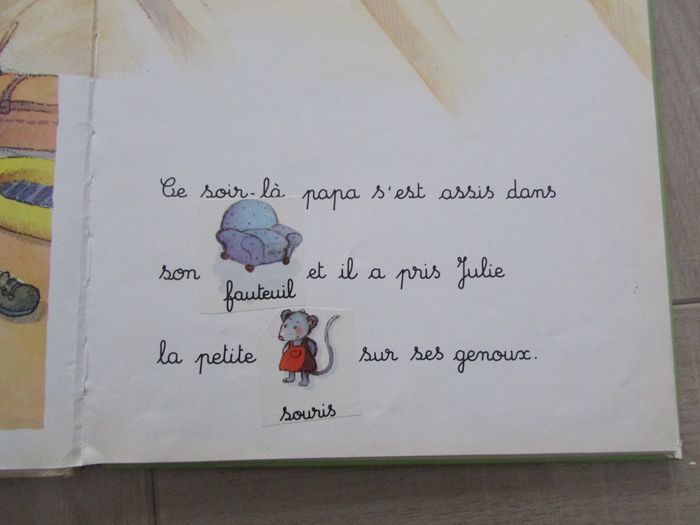 Ce soir-là papa s'est assis dans
son fauteuil et il a pris Julie
la petite souris sur ses genoux.